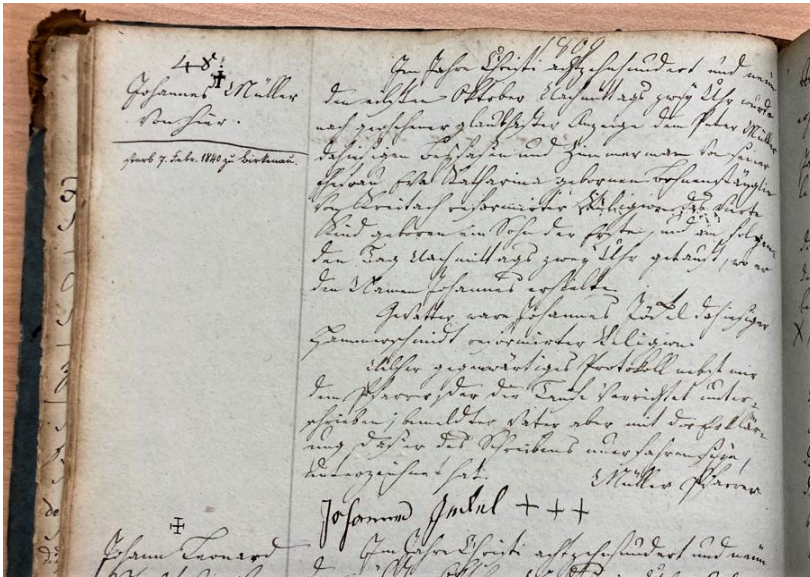 1809
48.
Johannes Müller
von hier.
starb 7. Febr. 1840 zu Birkenau.
Im Jahre Christi achtzehnhundert und neun
den eilften Oktober Nachmittags zwey Uhr wurde
nach geschehener glaubhafter Anzeige dem Peter Müller
dahiesigen Beysasen und Zimmermann von seiner
Ehefrau Eva Katharina gebornen
von reformirter Religion das vierte
Kind geboren ein Sohn der Erste, und am folgen-
den Tag Nachmittags zwey Uhr getauft, wo er
den Namen Johannes erhielte.
Gevatter ware Johannes dahiesiger
Hammerschmidt reformirter Religion.
Welcher gegenwärtiges Protokoll nebst mir
dem Pfarrer, der die Taufe verrichtet unter-
schrieben, bemeldter Vater aber mit der Erklär-
ung, daß er des Schreibens unerfahren seye,
unterzeichnet hat.
Müller Pfarrer
Johannes +++
Johann Leonard
Im Jahre Christi achtzehnhundert und neun